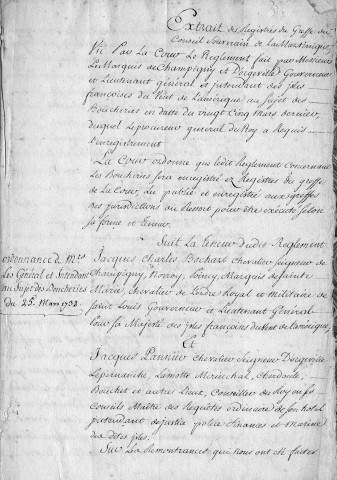 Extrait des Registres du Greffe du
Conseil Souverain de La Martinique,
Vû Par La Cour Le Reglement fait par Messieurs
Le Marquis de Champigny et Dorgeville Gouverneur
et Lieutenant général et jntendant des jsles
françoises du Vent de Lamerique au Sujet des
Boucheries en datte du vingt Cinq Mars dernier,
duquel Le procureur general du Roy a Requis
L'enregistrement
La Cour ordonne que ledit Reglement Concernant
Les Boucheries sera enregistré ez Registres du greffe
de La Cour, Lu publié et enregistré aux greffes
des jurisdictions du Ressort pour être executé selon
sa forme et teneur
Suit La teneur dudit Reglement
ordonnance de Mrs
Les Général et Jntendant
au Sujet des Boucheries
du 25. Mars 1738.
Jacques Charles Bochart chevalier seigneur de
Champigny, Noroy, Poincy, Marquis de sainte
Marie, Chevalier de L'ordre Royal et militaire de
saint Louis Gouverneur et Lieutenant Général
pour sa Majesté des jsles françoises du Vent de Lamerique,
Et
Jacques Pannier chevalier Seigneur Dorgeville
Lamotte
Bouchet et autres Lieux, Conseiller du Roy en ses
Conseils Maître des Requêtes ordinaire de son hotel
jntendant de justice police finances et Marine
des dites jsles.
Sur Les Remontrances qui Nous ont été faites